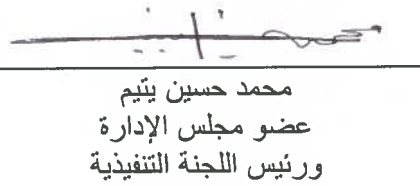 محمد حسين يتيم
عضو مجلس الإدارة
ورئيس اللجنة التنفيذية